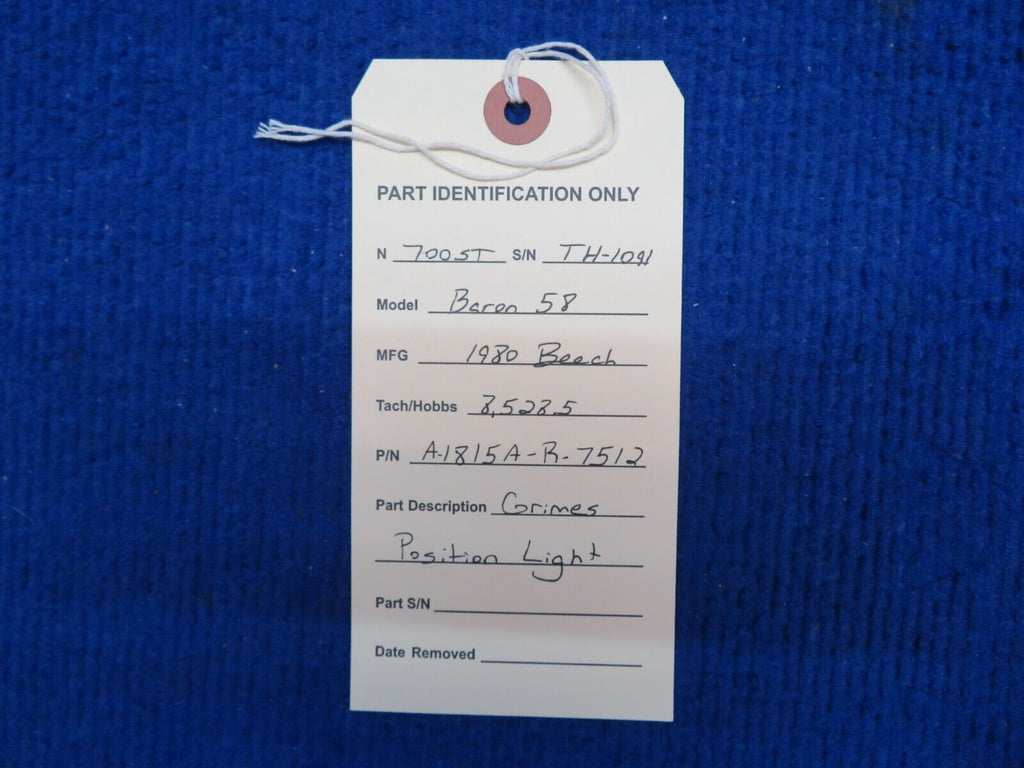 PART IDENTIFICATION ONLY
N 700ST S/N TH-1091
Model Baron 58
MFG 1980 Beech
Tach/Hobbs 8,528.5
P/N A-1815A-R-7512
Part Description Grimes
Position Light
Part S/N
Date Removed